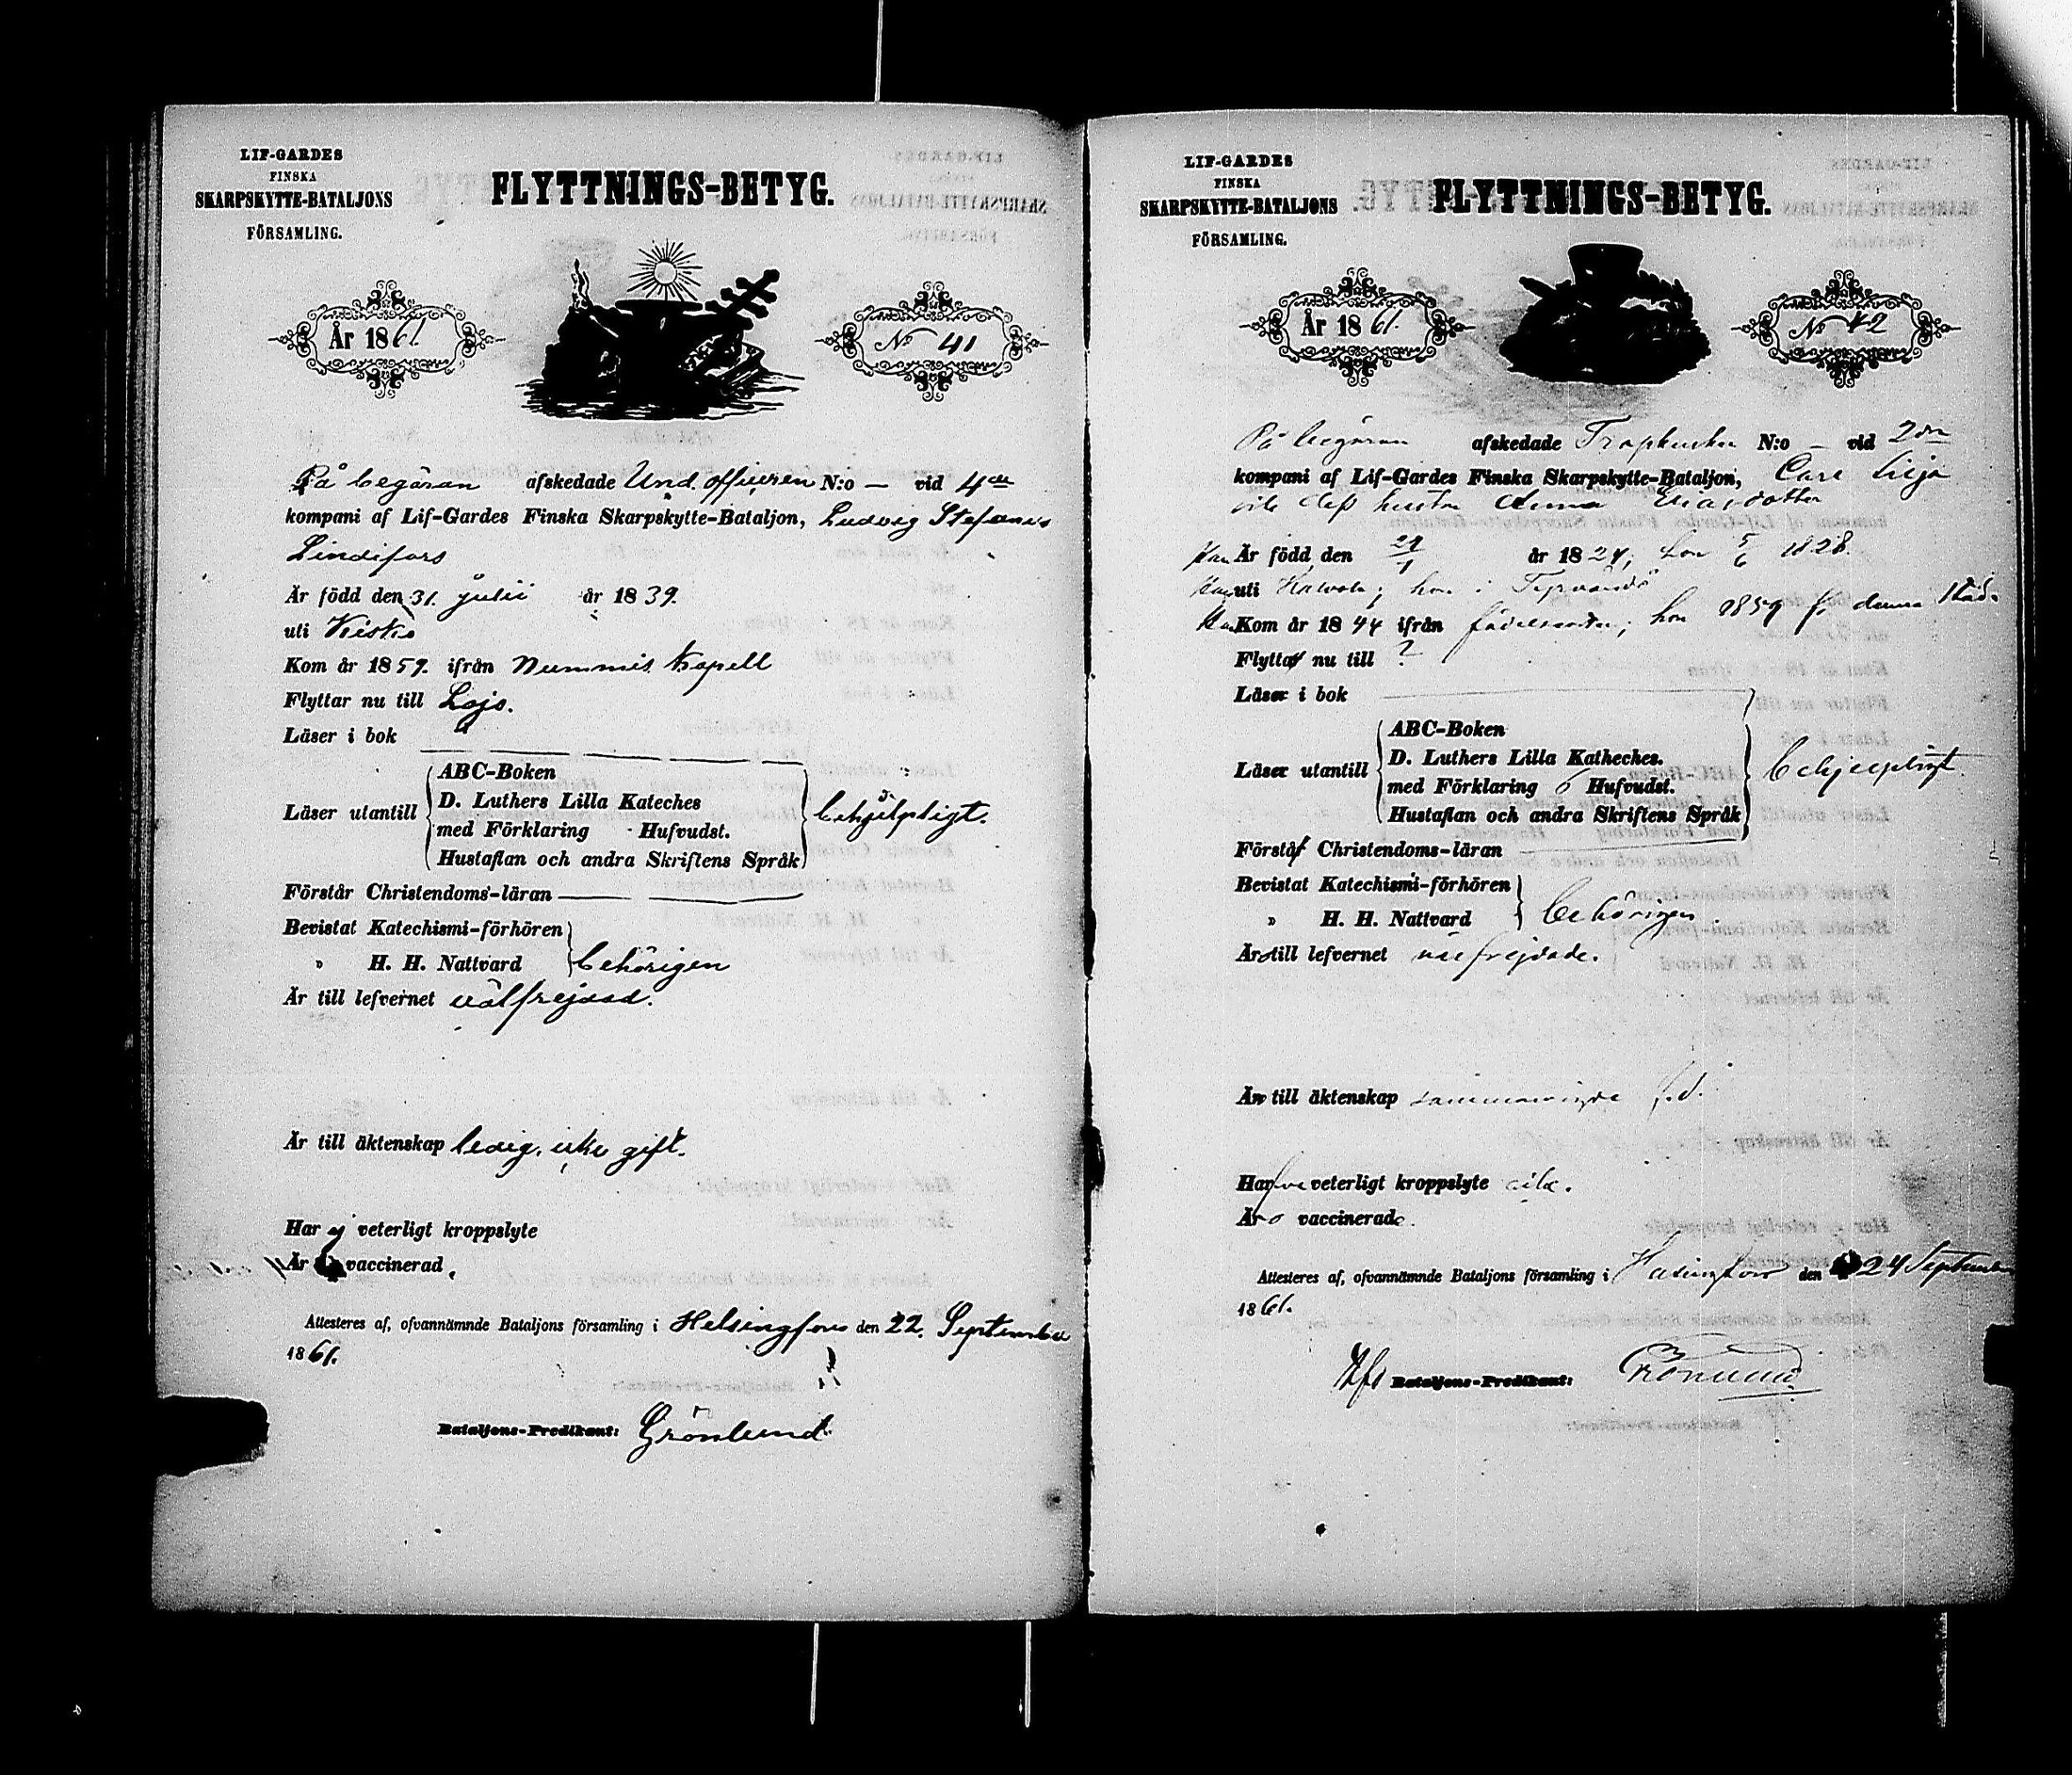 LIF-GARDES
FINSKA
SKARPSKYTTE-BATALJONS
FÖRSAMLING.
FLYTTNINGS-BETYG.
År 1861
No 41
På begäran afskedade Und. officeren N:o — vid 4de
kompani af Lif-Gardes Finska Skarpskytte-Bataljon, Ludvig Stefanus
Lindifors
Är född den 31. Julii år 1839.
uti Kisko
Kom år 1859. ifrån Nummis Kapell
Flyttar nu till Lojo.
Läser i bok
Läser utantill
ABC-Boken
D. Luthers Lilla Kateches
med Förklaring Hufvudst.
Hustaflan och andra Skriftens Språk
behjelpligt.
Förstår Christendoms-läran
Bevistat Katechismi-förhören
„ H. H. Nattvard
behörigen
Är till lefvernet välfrejdad.
Är till äktenskap ledig, icke gift.
Har ej veterligt kroppslyte
Är vaccinerad.
Attesteres af, ofvannämnde Bataljons församling i Helsingfors den 22. September
1861.
Bataljons-Predikant: Grönlund
LIF-GARDES
FINSKA
SKARPSKYTTE-BATALJONS
FÖRSAMLING.
FLYTTNINGS-BETYG.
År 1861.
No 42
På begäran afskedade N:o — vid 2dra
kompani af Lif-Gardes Finska Skarpskytte-Bataljon, Carl Lilja
och dess hustru Anna Eliasdotter
Han Är född den 29/1 år 1824, hon 5/6 1828.
Han uti ; hon i
Han Kom år 1844 ifrån födelseorten; hon 1859 fr. denna stad.
Flytta nu till ?
Läser i bok
Läser utantill
ABC-Boken
D. Luthers Lilla Katheches.
med Förklaring 6 Hufvudst.
Hustaflan och andra Skriftens Språk
behjelpligt.
Förstå Christendoms-läran
Bevistat Katechismi-förhören
„ H. H. Nattvard
behörigen.
Äro till lefvernet välfrejdade.
Är till äktenskap sammanvigde
Hafva veterligt kroppslyte icke.
Äro vaccinerade.
Attesteres af, ofvannämnde Bataljons församling i Helsingfors den 24 September
1861.
Bataljons-Predikant: Grönlund